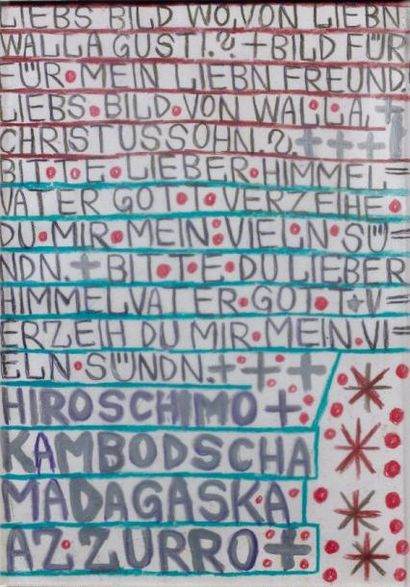 LIEBS BILD WO,VON LIEBN
WALLA GUSTI.?+BILD FÜR
FÜR•MEIN LIEBN FREUND.
LIEBS•BILD•VON WALLA,+
CHRISTUSSOHN.?.++++
BIT•TE•LIEBER•HIMMEL=
VATER GOT•T•VERZEIHE•
DU•MIR•MEIN•VIELN•SÜ=
NDN.+BIT•TE•DU LIEBER
HIMMELVATER•GOT•T•+V=
ERZEIH DU MIR•MEIN•VI=
ELN•SÜNDN.+++
HIROSCHIMO+
KAMBODSCHA
MADAGASKA
AZ•ZURRO•+